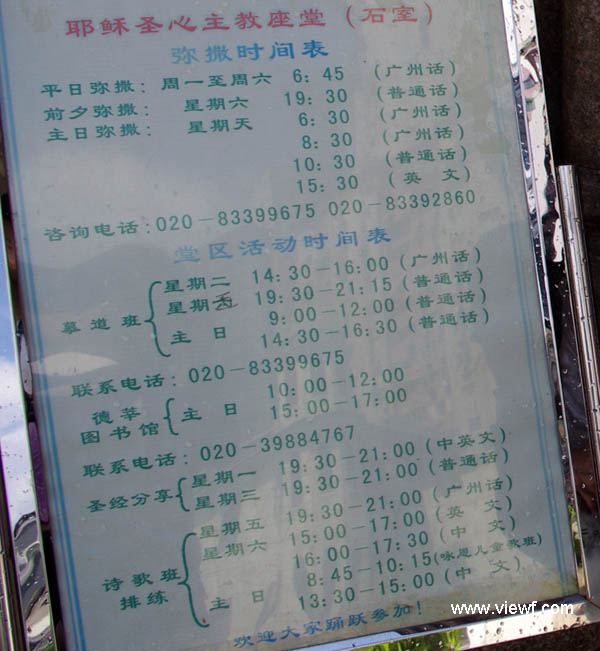 耶稣圣心主教座堂（石室）
弥撒时间表
平日弥撒：周一至周六 6：45 （广州话）
前夕弥撒： 星期六 19：30 （普通话）
主日弥撒： 星期天 6：30 （广州话）
8：30 （广州话）
10：30 （普通话）
15：30 （英 文）
咨询电话：020－83399675 020－83392860
堂区活动时间表
慕道班
星期二 14：30－16：00（广州话）
星期 19：30－21：15（普通话）
主 日 9：00－12：00（普通话）
14：30－16：30（普通话）
联系电话：020－83399675
德莘图书馆
主 日 10：00－12：00
15：00－17：00
联系电话：020－39884767
圣经分享
星期一 19：30－21：00（中英文）
星期三 19：30－21：00（普通话）
诗歌班排练
星期五 19：30－21：00（广州话）
星期六 15：00－17：00（英 文）
16：00－17：30（中 文）
主 日 8：45－10：15（咏恩儿童歌班）
13：30－15：00（中 文）
欢迎大家踊跃参加！
www.viewf.com